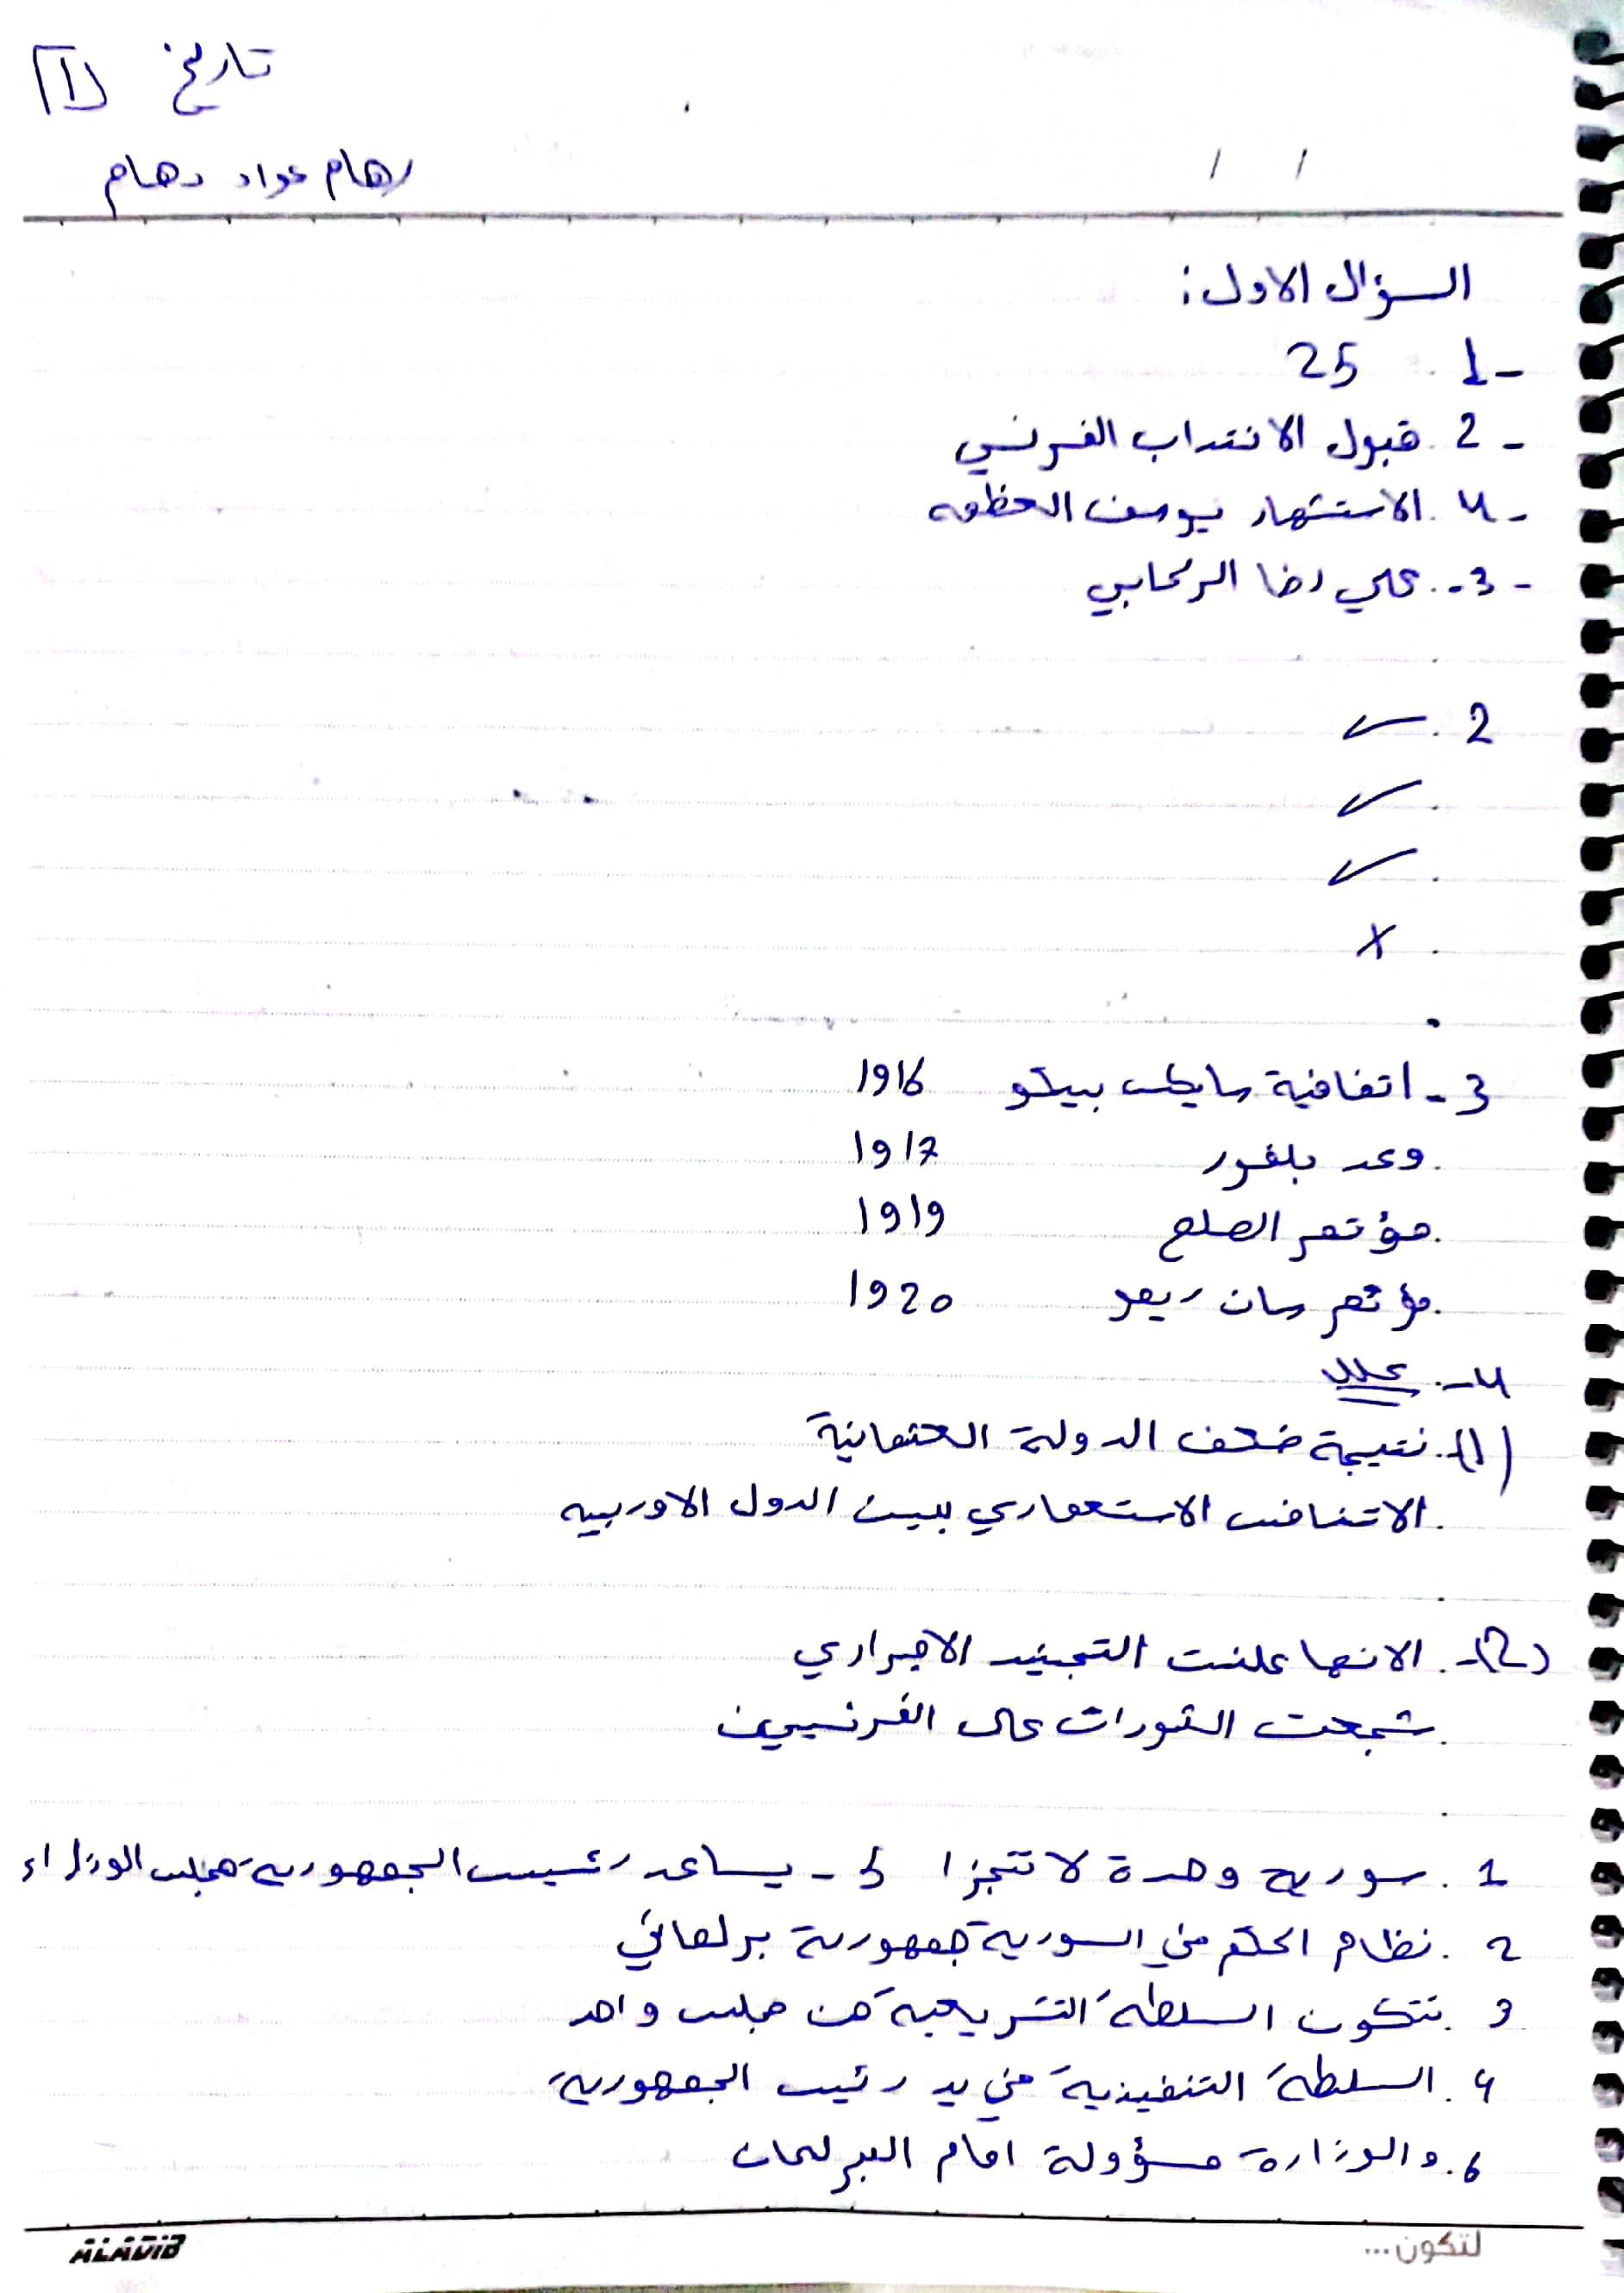 تاريخ 1
رهام عواد دهام
/ /
السؤال الاول:
1- 25
2- قبول الانتداب الفرنسي
4- الاستشهاد يوسف العظمه
3- علي رضا الركابي
2. ✓
. ✓
. ✓
. x
3- اتفاقية سايكس بيكو 1916
. وعد بلفور 1917
. مؤتمر الصلح 1919
. مؤتمر سان ريمو 1920
4- علل
(1)- نتيجة ضعف الدولة العثمانية
. الاتنافس الاستعماري بين الدول الاوربيه
(2)- الانها علنت التجنيد الاجراري
. شجعت الثورات على الفرنسيين
1. سورية وحدة لا تتجزا 5- يساعد رئيس الجمهورية مجلس الوزراء
2. نظام الحكم في السورية جمهورية برلماني
3. تتكون السلطة التشريعية من مجلس واحد
4. السلطة التنفيذية في يد رئيس الجمهورية
6. والوزارة مسؤولة امام البرلمان
ALADIB
لتكون...